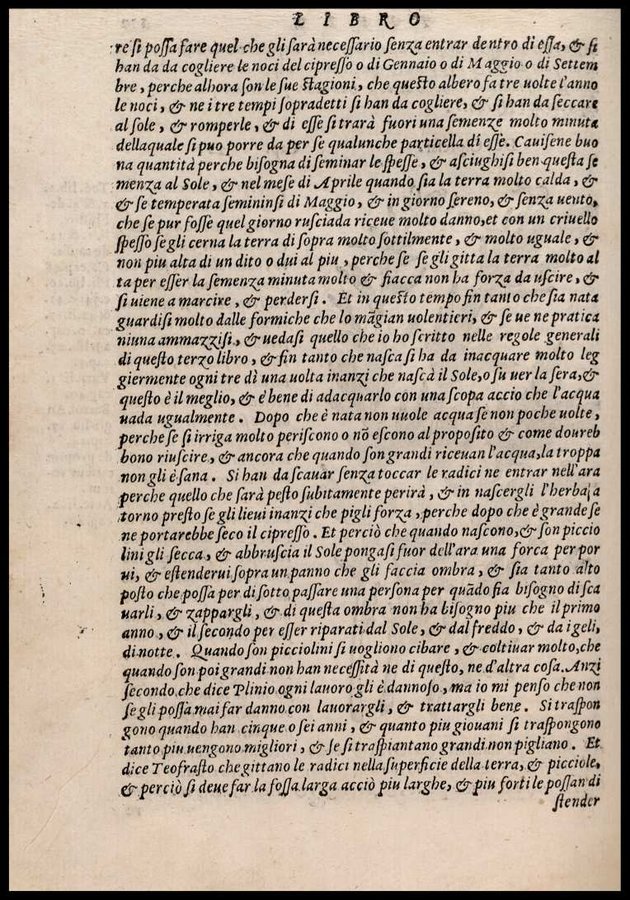 LIBRO
re si possa fare quel che gli sarà necessario senza entrar dentro di essa, & si
han da da cogliere le noci del cipresso o di Gennaio o di Maggio o di Settem
bre, perche alhora son le sue stagioni, che questo albero fa tre uolte l'anno
le noci, & ne i tre tempi sopradetti si han da cogliere, & si han da seccare
al sole, & romperle, & di esse si trarà fuori una semenze molto minuta
della quale si puo porre da per se qualunche particella di esse. Cauisene buo
na quantità perche bisogna di seminar le spesse, & asciughisi ben questa se
menza al Sole, & nel mese di Aprile quando sia la terra molto calda, &
& se temperata semininsi di Maggio, & in giorno sereno, & senza uento,
che se pur fosse quel giorno rusciada riceue molto danno, et con un criuello
spesso se gli cerna la terra di sopra molto sottilmente, & molto uguale, &
non piu alta di un dito o dui al piu, perche se se gli gitta la terra molto al
ta per esser la semenza minuta molto & fiacca non ha forza da uscire, &
si uiene a marcire, & perdersi. Et in questo tempo fin tanto che sia nata
guardisi molto dalle formiche che lo mãgian uolentieri, & se ue ne pratica
niuna ammazzisi, & uedasi quello che io ho scritto nelle regole generali
di questo terzo libro, & fin tanto che nasca si ha da inacquare molto leg
giermente ogni tre dì una uolta inanzi che nascà il Sole, o su uer la sera, &
questo è il meglio, & è bene di adacquarlo con una scopa accio che l'acqua
uada ugualmente. Dopo che è nata non uuole acqua se non poche uolte,
perche se si irriga molto periscono o nõ escono al proposito & come doureb
bono riuscire, & ancora che quando son grandi riceuan l'acqua, la troppa
non gli è sana. Si han da scauar senza toccar le radici ne entrar nell'ara
perche quello che sarà pesto subitamente perirà, & in nascergli l'herba, a
torno presto se gli lieui inanzi che pigli forza, perche dopo che è grande se
ne portarebbe seco il cipresso. Et perciò che quando nascono, & son piccio
lini gli secca, & abbruscia il Sole pongasi fuor dell'ara una forca per por
ui, & estenderui sopra un panno che gli faccia ombra, & sia tanto alto
posto che possa per di sotto passare una persona per quãdo fia bisogno di sca
uarli, & zappargli, & di questa ombra non ha bisogno piu che il primo
anno, & il secondo per esser riparati dal Sole, & dal freddo, & da i geli,
di notte. Quando son picciolini si uogliono cibare, & coltiuar molto, che
quando son poi grandi non han necessità ne di questo, ne d'altra cosa. Anzi
secondo che dice Plinio ogni lauoro gli è dannoso, ma io mi penso che non
se gli possa mai far danno con lauorargli, & trattargli bene. Si traspon
gono quando han cinque o sei anni, & quanto piu giouani si traspongono
tanto piu uengono migliori, & se si traspiantano grandi non pigliano. Et
dice Teofrasto che gittano le radici nella superficie della terra, & picciole,
& perciò si deue far la fossa larga acciò piu larghe, & piu forti le possan di
stender